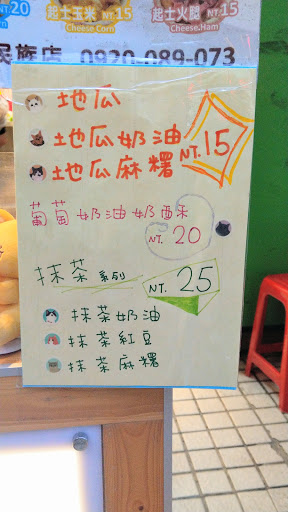 NT.20
起士玉米 NT.15
Cheese Corn
起士火腿 NT.15
Cheese.Ham
民族店 0920-089-073
地瓜
地瓜奶油
地瓜麻糬
NT.15
葡萄奶油奶酥
NT. 20
抹茶系列 NT. 25
抹茶奶油
抹茶紅豆
抹茶麻糬